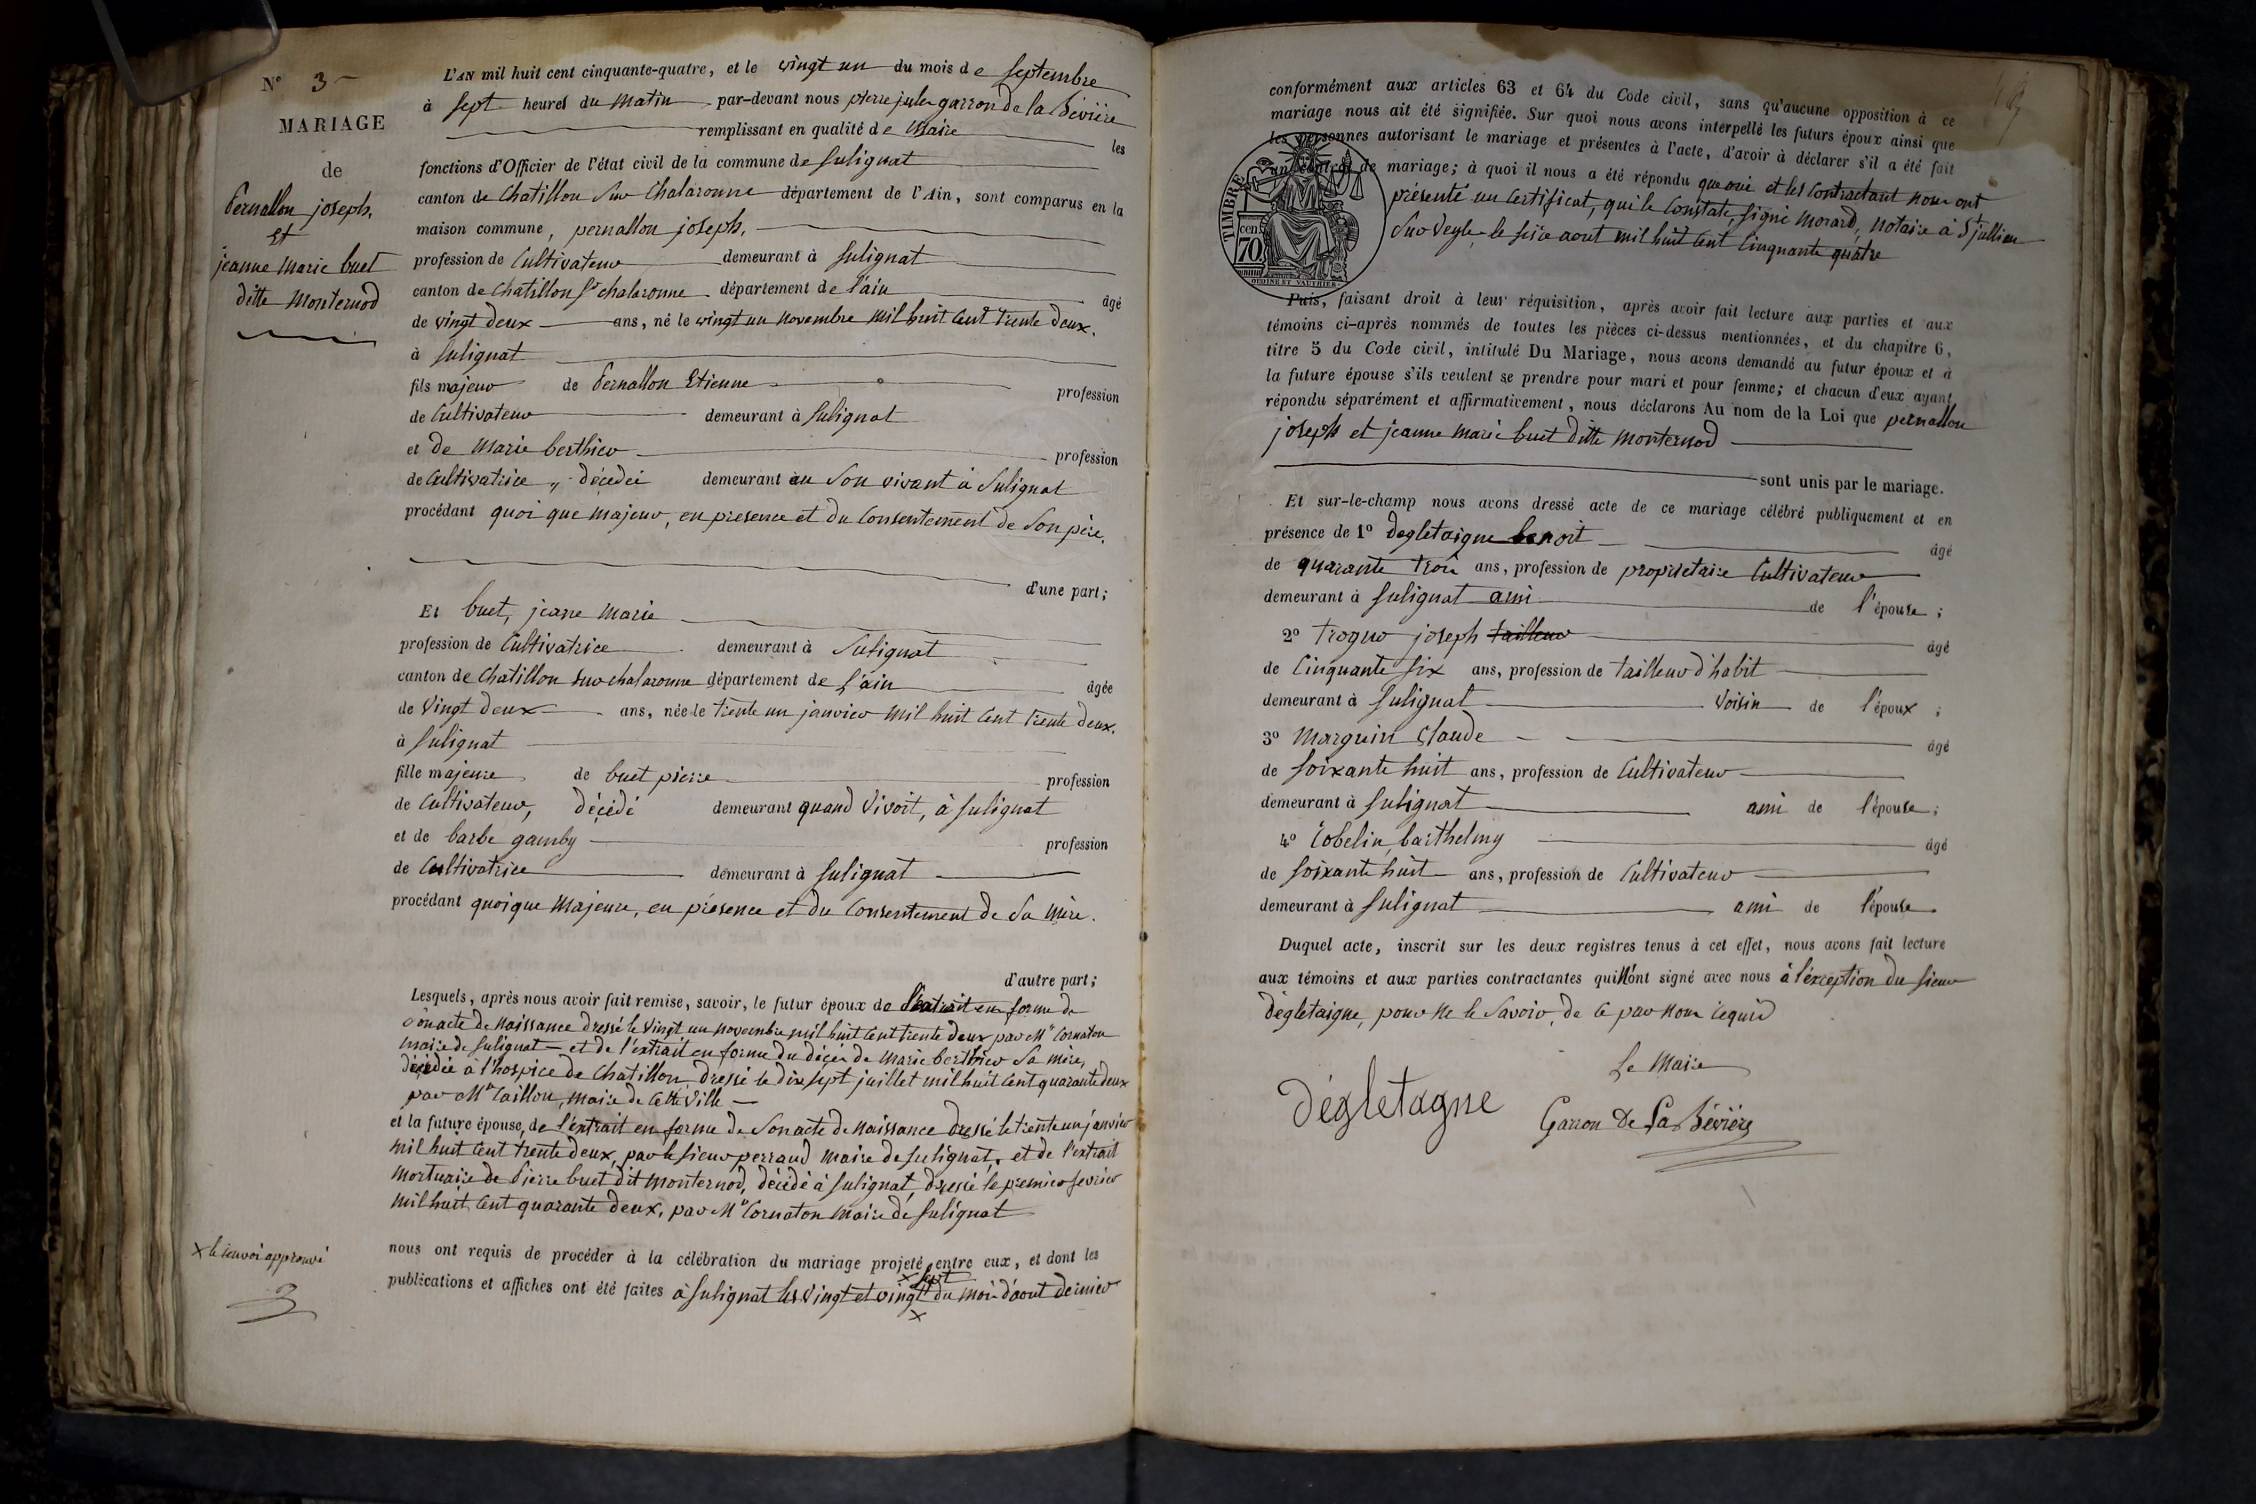 N° 3
MARIAGE
de
Pernallon joseph,
Et
jeanne Marie buet
ditte Monternod
L'AN mil huit cent cinquante-quatre, et le vingt un du mois de Septembre
à Sept heures du Matin par-devant nous pierre jules garron de la Bévière
remplissant en qualité de Maire les
fonctions d'Officier de l'état civil de la commune de Sulignat
canton de Chatillon Sur Chalaronne département de l'Ain, sont comparus en la
maison commune, pernallon joseph,
profession de Cultivateur demeurant à Sulignat
canton de Chatillon Sr chalaronne département de l'ain âgé
de vingt deux ans, né le vingt un novembre mil huit Cent trente deux.
à Sulignat
fils majeur de Pernallon Etienne profession
de Cultivateur demeurant à Sulignat
et de Marie berthier profession
de Cultivatrice, décédée demeurant en Son vivant à Sulignat
procédant quoi que majeur, en presence et du Consentement de Son père.
d'une part;
Et buet, jeane Marie
profession de Cultivatrice demeurant à Sulignat
canton de Chatillon sur chalaronne département de l'ain âgée
de Vingt deux ans, née le trente un janvier Mil huit Cent trente deux.
à Sulignat
fille majeure de buet pierre profession
de Cultivateur, décédé demeurant quand Vivoit, à Sulignat
et de barbe gamby profession
de Cultivatrice demeurant à Sulignat
procédant quoique Majeure, en présence et du Consentement de Sa Mère.
d'autre part;
Lesquels, après nous avoir fait remise, savoir, le futur époux de l'extrait en forme de
Son acte de Naissance dressé le Vingt un novembre mil huit Cent trente deux par Mr Cornaton
maire de Sulignat et de l'extrait en forme du décès de Marie berthier Sa mère,
décédée à l'hospice de Chatillon, dressé le dix sept juillet mil huit Cent quarante deux
par Mr Caillon, maire de Cette Ville
et la future épouse, de l'extrait en forme de Son acte de Naissance dressé le trente un janvier
mil huit Cent trente deux, par le Sieur perraud maire de Sulignat, et de l'extrait
mortuaire de Pierre buet dit Monternod, décédé à Sulignat, dressé le premier fevrier
mil huit Cent quarante deux, par Mr Cornaton Maire de Sulignat
x le renvoi approuvé
nous ont requis de procéder à la célébration du mariage projeté entre eux, et dont les
x Sept
publications et affiches ont été faites à Sulignat les Vingt et vingt x du mois d'aout dernier
conformément aux articles 63 et 64 du Code civil, sans qu'aucune opposition à ce
mariage nous ait été signifiée. Sur quoi nous avons interpellé les futurs époux ainsi que
les personnes autorisant le mariage et présentes à l'acte, d'avoir à déclarer s'il a été fait
un contrat de mariage; à quoi il nous a été répondu que oui et les Contractant nous ont
présenté un Certificat, qui le Constate, Signé Morard, Notaire à St jullien
Sur Veyle le Seize aout mil huit Cent Cinquante quatre
TIMBRE
cen. 70
OUDINE ET VAUTHIER
Puis, faisant droit à leur réquisition, après avoir fait lecture aux parties et aux
témoins ci-après nommés de toutes les pièces ci-dessus mentionnées, et du chapitre 6,
titre 5 du Code civil, intitulé Du Mariage, nous avons demandé au futur époux et à
la future épouse s'ils veulent se prendre pour mari et pour femme; et chacun d'eux ayant
répondu séparément et affirmativement, nous déclarons Au nom de la Loi que pernallon
joseph et jeanne Marie buet ditte Monternod
sont unis par le mariage.
Et sur-le-champ nous avons dressé acte de ce mariage célébré publiquement et en
présence de 1° degletaigne benoit âgé
de quarante trois ans, profession de proprietaire Cultivateur
demeurant à Sulignat ami de l'épouse;
2° Trogno joseph tailleur âgé
de Cinquante Six ans, profession de tailleur d'habit
demeurant à Sulignat Voisin de l'époux;
3° Marguin Claude âgé
de Soixante huit ans, profession de Cultivateur
demeurant à Sulignat ami de l'épouse;
4° Cobelin, barthelmy âgé
de Soixante huit ans, profession de Cultivateur
demeurant à Sulignat ami de l'épouse
Duquel acte, inscrit sur les deux registres tenus à cet effet, nous avons fait lecture
aux témoins et aux parties contractantes qui n'ont signé avec nous à l'exception du Sieur
dégletaigne, pour ne le Savoir, de Ce par nous requis
Le Maire
Dégletagne
Garron De La Bévière